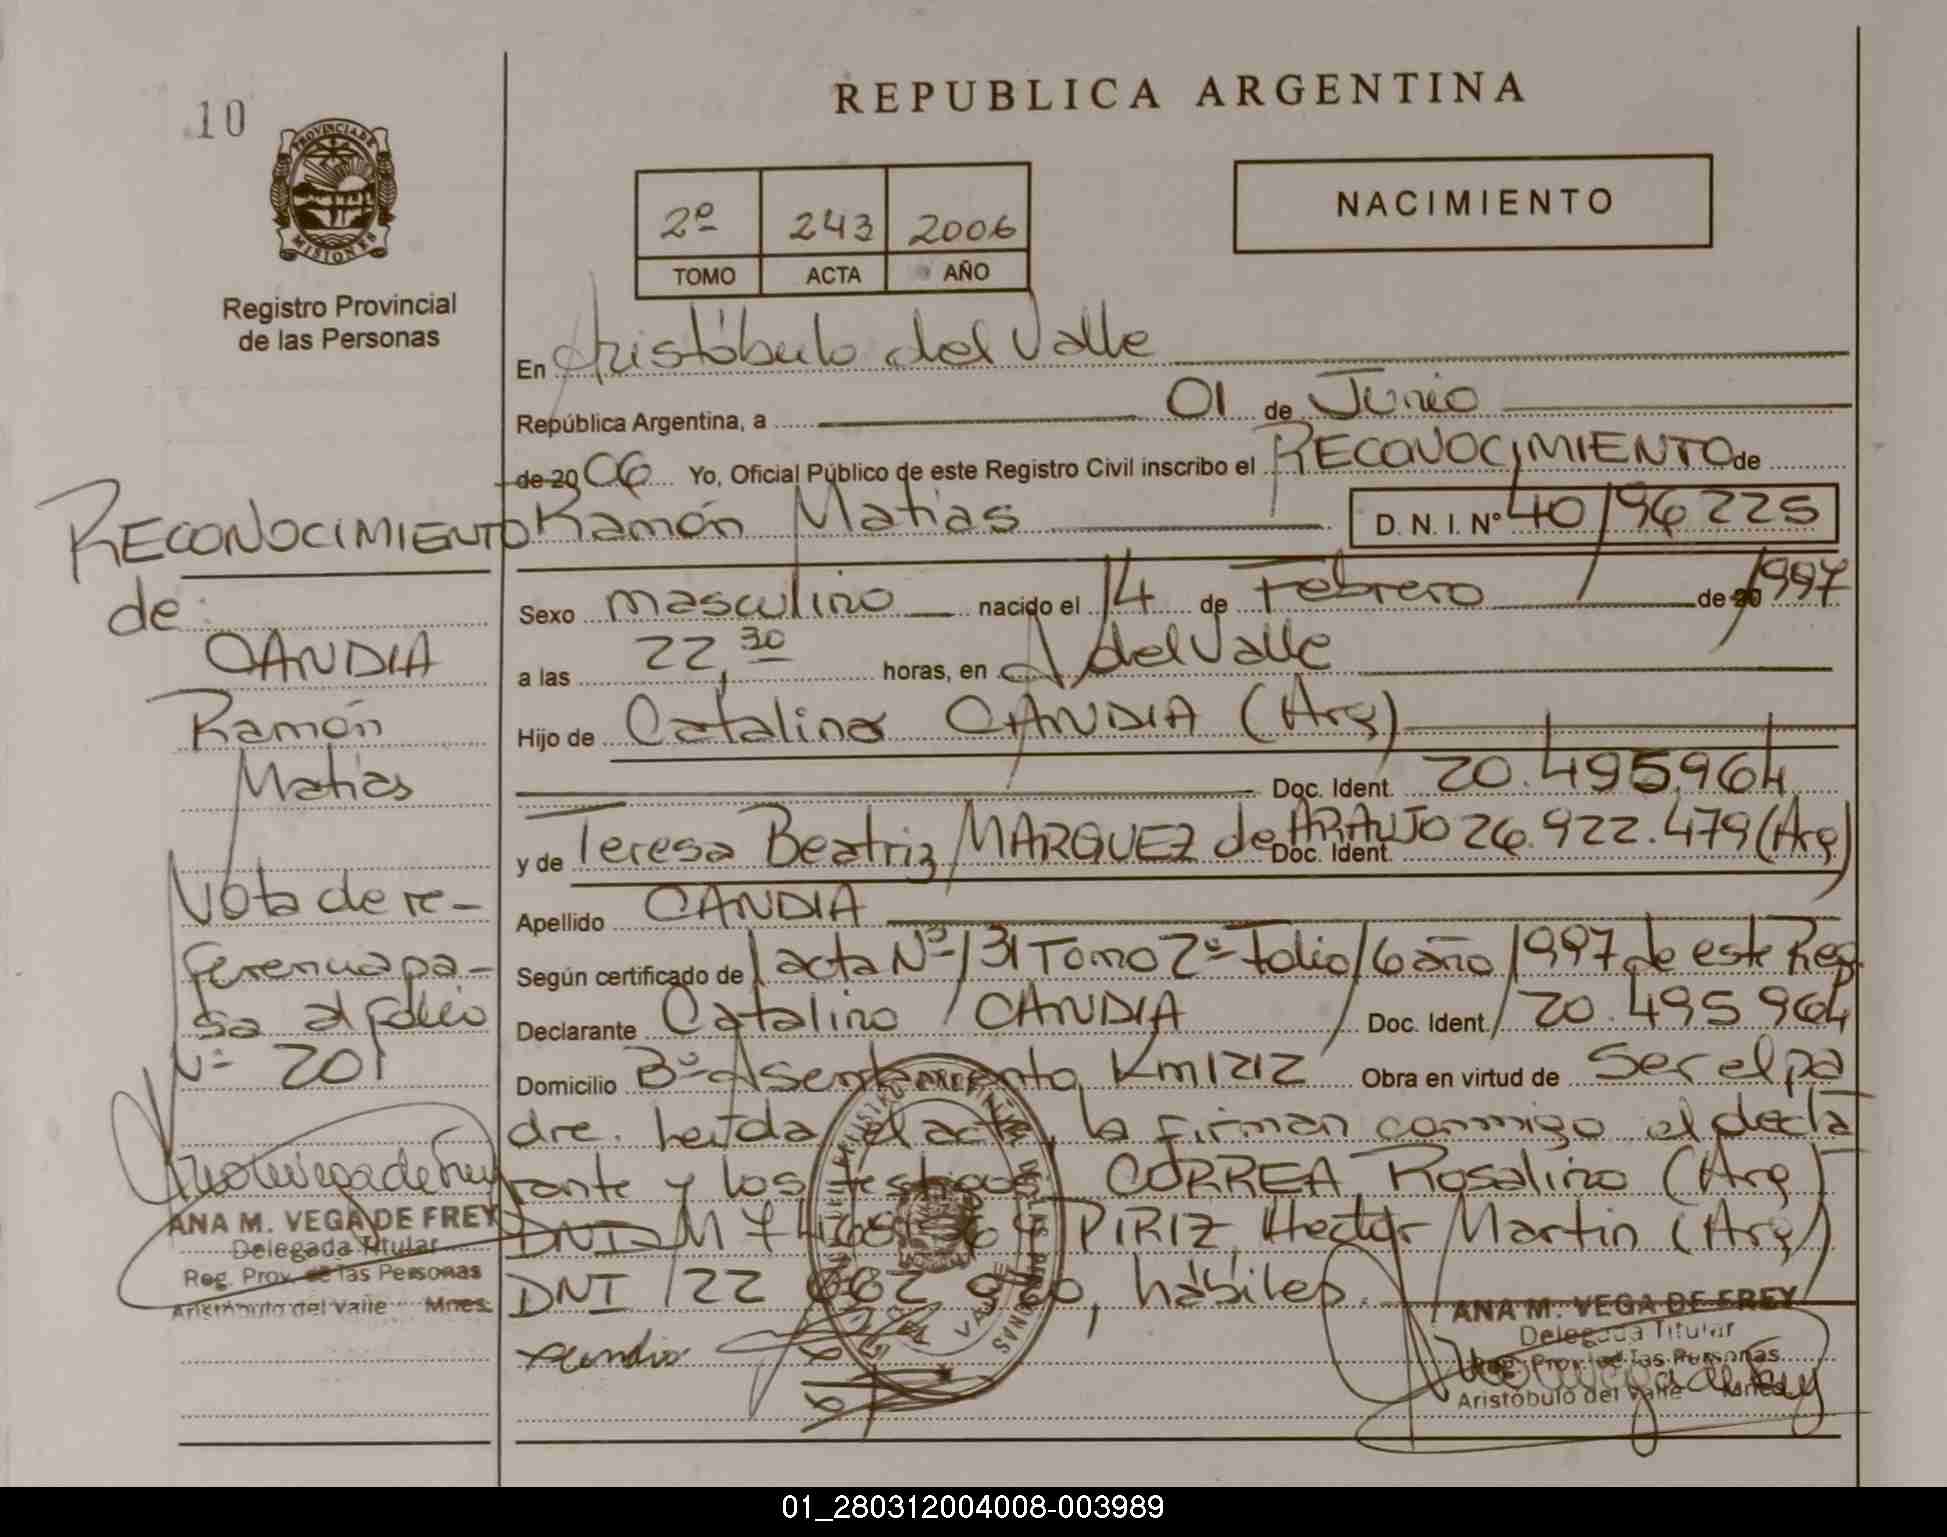 10
PROVINCIA DE
MISIONES
Registro Provincial
de las Personas
REPUBLICA ARGENTINA
2º 243 2006
TOMO ACTA AÑO
NACIMIENTO
En Aristóbulo del Valle
República Argentina, a 01 de Junio
de 20 06 Yo, Oficial Público de este Registro Civil inscribo el RECONOCIMIENTO de
Ramón Matias D. N. I. Nº 40196225
Sexo masculino nacido el 14 de Febrero de 20 1997
a las 22,30 horas, en A del Valle
Hijo de Catalino CANDIA (Arg)
Doc. Ident. 20.495.964
y de Teresa Beatriz MARQUEZ de ARAUJO Doc. Ident. 26.922.479 (Arg)
Apellido CANDIA
Según certificado de acta Nº 131 Tomo 2º Folio 16 año 1997 de este Reg
Declarante Catalino CANDIA Doc. Ident. 20.495 964
Domicilio Bº Asentamiento Km 1212 Obra en virtud de ser el pa
dre. Leída el acta, la firman conmigo el decla
rante y los testigos CORREA Rosalino (Arg)
DNI M PIRIZ, Hector Martin (Arg)
DNI 22 hábiles.
ANA M. VEGA DE FREY
Delegada Titular
Reg. Prov. de las Personas
Aristóbulo del Valle Mnes.
RECONOCIMIENTO
de:
CANDIA
Ramón
Matías
Nota de re-
ferencia pa-
sa al folio
Nº 201
ANA M. VEGA DE FREY
Delegada Titular
Reg. Prov. de las Personas
Aristóbulo del Valle Mnes.
01_280312004008-003989